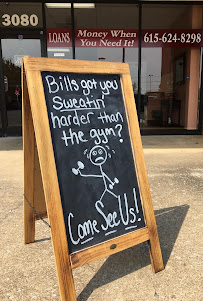 3080
LOANS
Money When
You Need It!
615-624-8298
Bills got you
Sweatin'
harder than
the gym?
Come See Us!